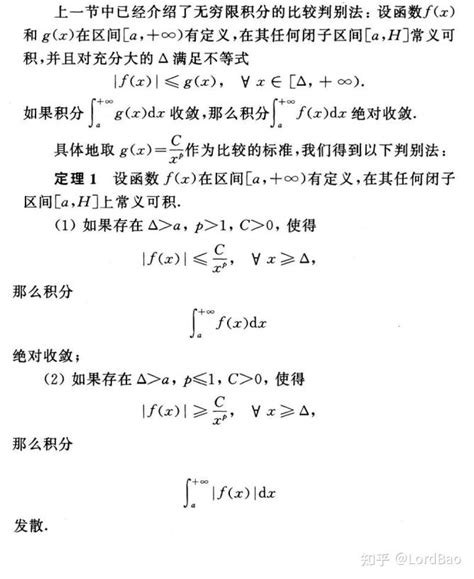 上一节中已经介绍了无穷限积分的比较判别法：设函数f(x)
和g(x)在区间[a,+∞)有定义,在其任何闭子区间[a,H]常义可
积,并且对充分大的Δ满足不等式
|f(x)|≤g(x), ∀ x∈[Δ,+∞).
如果积分∫_a^{+∞}g(x)dx 收敛,那么积分∫_a^{+∞}f(x)dx 绝对收敛.
具体地取 g(x)=C/x^p作为比较的标准,我们得到以下判别法：
定理1 设函数 f(x)在区间[a,+∞)有定义,在其任何闭子
区间[a,H]上常义可积.
(1) 如果存在 Δ>a, p>1, C>0, 使得
|f(x)|≤C/x^p, ∀ x≥Δ,
那么积分
∫_a^{+∞}f(x)dx
绝对收敛；
(2) 如果存在 Δ>a, p≤1, C>0, 使得
|f(x)|≥C/x^p, ∀ x≥Δ,
那么积分
∫_a^{+∞}|f(x)|dx
发散.
知乎 @LordBao